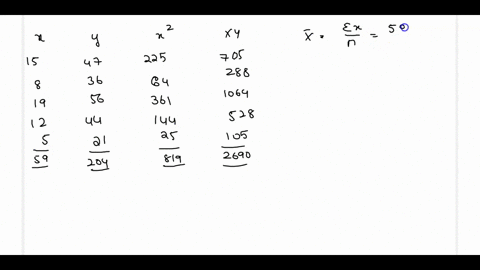 x y x² xy
15 47 225 705
8 36 64 288
19 56 361 1064
12 44 144 528
5 21 25 105
59 204 819 2690
x̄ = Σx/n = 59